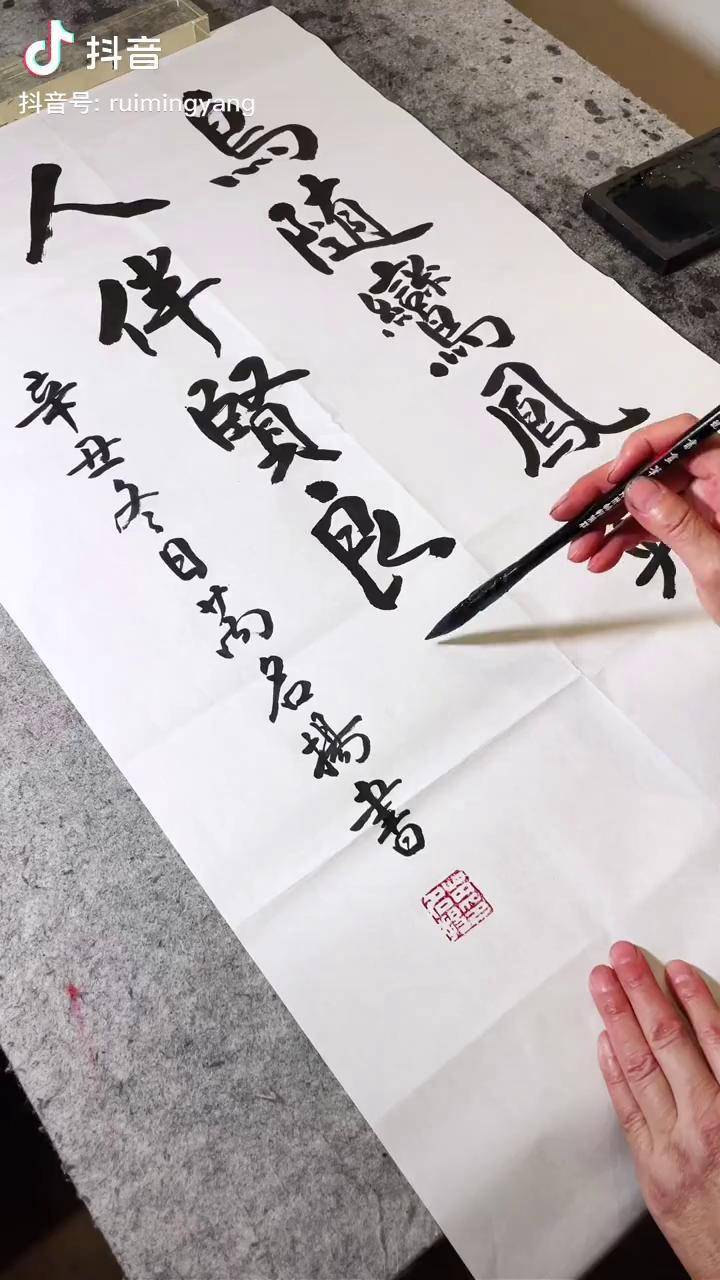 抖音
抖音号: ruimingyang
鳥随鸞鳳
人伴賢良
辛丑冬日芮名揚書